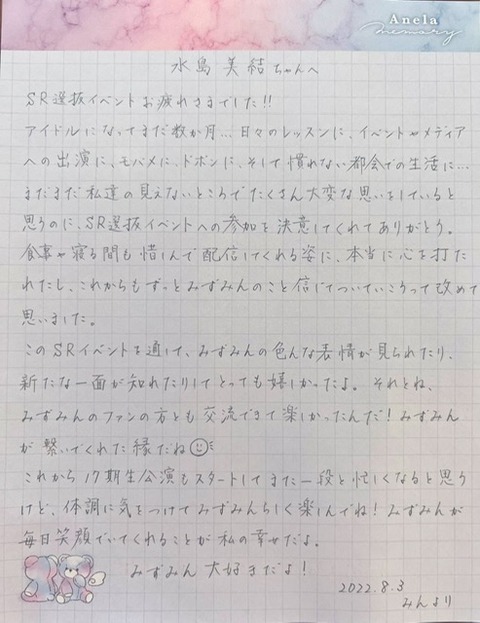 Anela
memory
水島美結ちゃんへ
SR選抜イベントお疲れさまでした!!
アイドルになってまだ数か月…日々のレッスンに、イベントやメディア
への出演に、モバメに、ドボンに、そして慣れない都会での生活に…
まだまだ私達の見えないところでたくさん大変な思いをしていると
思うのに、SR選抜イベントへの参加を決意してくれてありがとう。
食事や寝る間も惜しんで配信してくれる姿に、本当に心を打た
れたし、これからもずっとみずみんのこと信じてついていこうって改めて
思いました。
このSRイベントを通して、みずみんの色んな表情が見られたり、
新たな一面が知れたりしてとっても嬉しかったよ。それとね、
みずみんのファンの方とも交流できて楽しかったんだ!みずみん
が繋いでくれた縁だね
これから17期生公演もスタートしてまた一段と忙しくなると思う
けど、体調に気をつけてみずみんらしく楽しんでね!みずみんが
毎日笑顔でいてくれることが私の幸せだよ。
みずみん大好きだよ!
2022.8.3
みんより